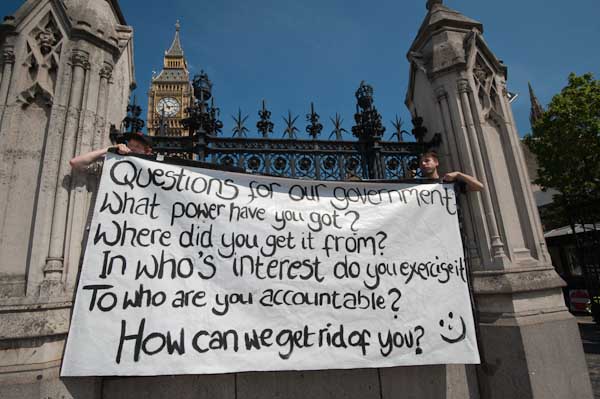 Questions for our government
What power have you got?
Where did you get it from?
In who's interest do you exercise it
To who are you accountable?
How can we get rid of you? :)